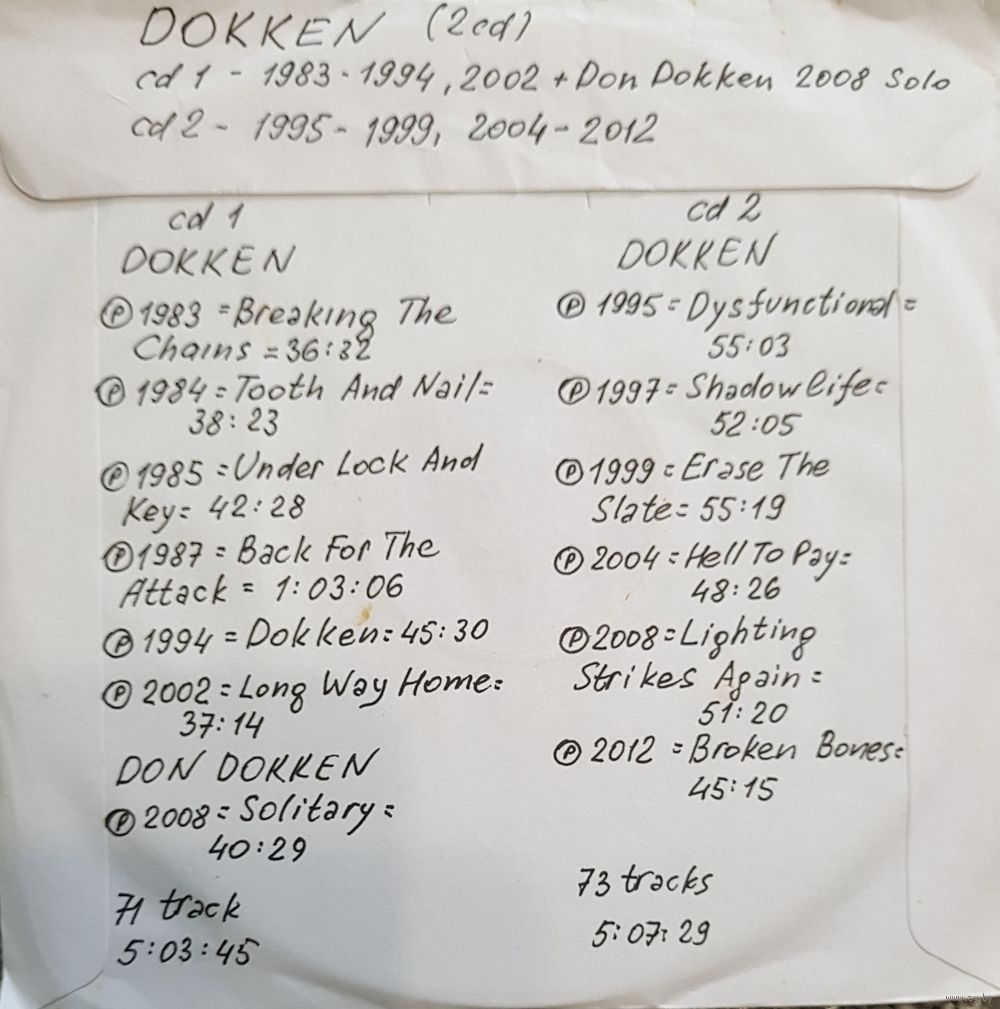 DOKKEN (2cd)
cd 1 - 1983-1994, 2002 + Don Dokken 2008 Solo
cd 2 - 1995-1999, 2004-2012
cd 1
DOKKEN
Ⓟ 1983 = Breaking The
Chains = 36:32
Ⓟ 1984 = Tooth And Nail =
38:23
Ⓟ 1985 = Under Lock And
Key = 42:28
Ⓟ 1987 = Back For The
Attack = 1:03:06
Ⓟ 1994 = Dokken = 45:30
Ⓟ 2002 = Long Way Home =
37:14
DON DOKKEN
Ⓟ 2008 = Solitary =
40:29
71 track
5:03:45
cd 2
DOKKEN
Ⓟ 1995 = Dysfunctional =
55:03
Ⓟ 1997 = Shadowlife =
52:05
Ⓟ 1999 = Erase The
Slate = 55:19
Ⓟ 2004 = Hell To Pay =
48:26
Ⓟ 2008 = Lighting
Strikes Again =
51:20
Ⓟ 2012 = Broken Bones =
45:15
73 tracks
5:07:29